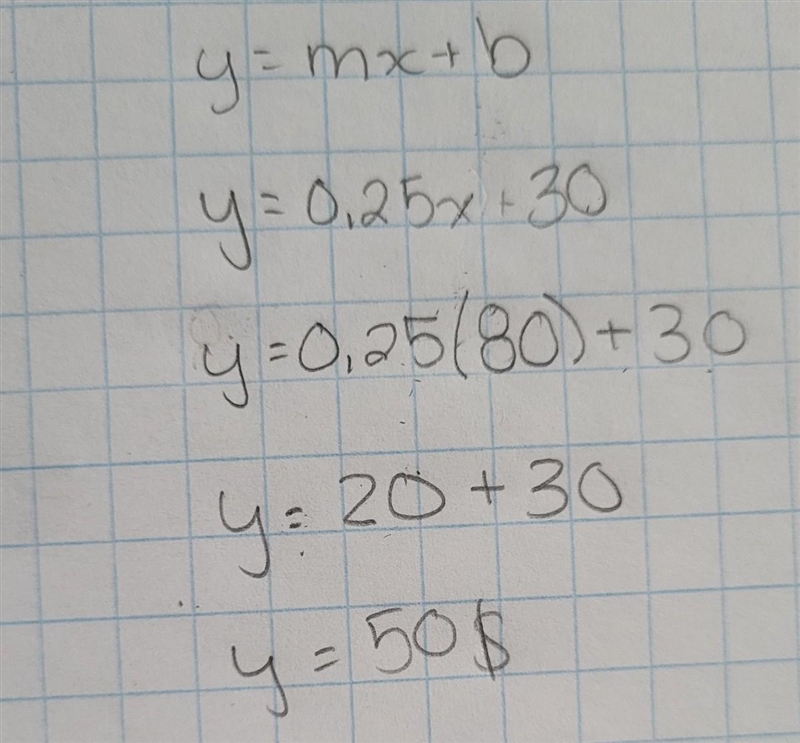 y = mx + b
y = 0,25x + 30
y = 0,25(80) + 30
y = 20 + 30
y = 50$